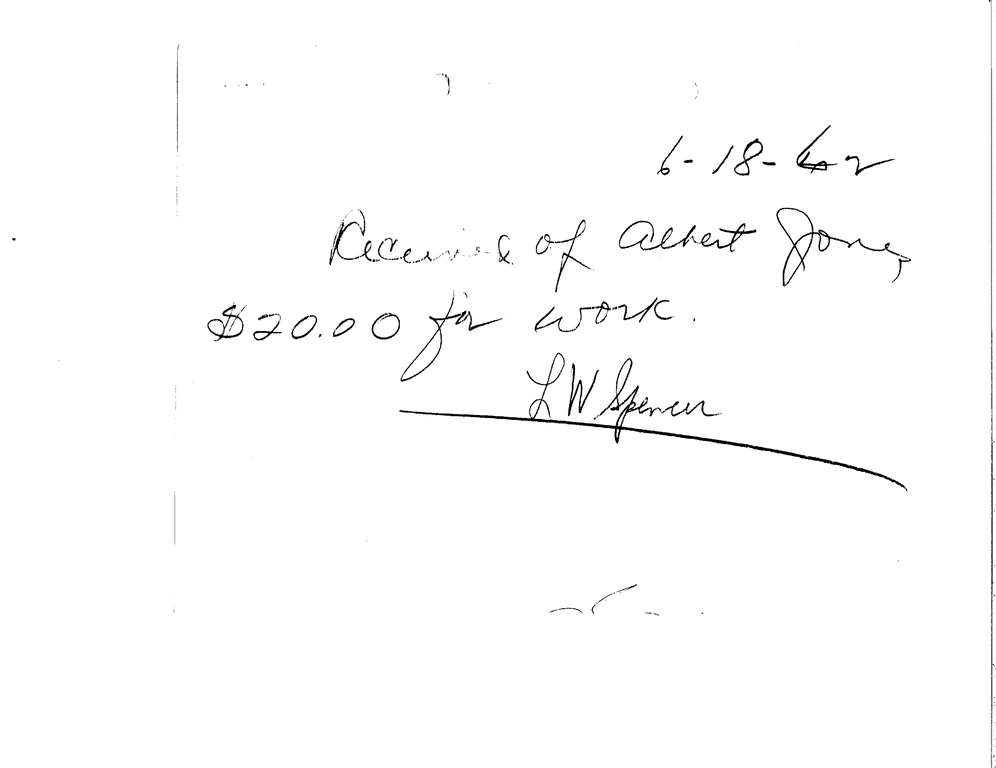 6-18-62
Received of Albert Jones
$20.00 for work.
L W Spencer